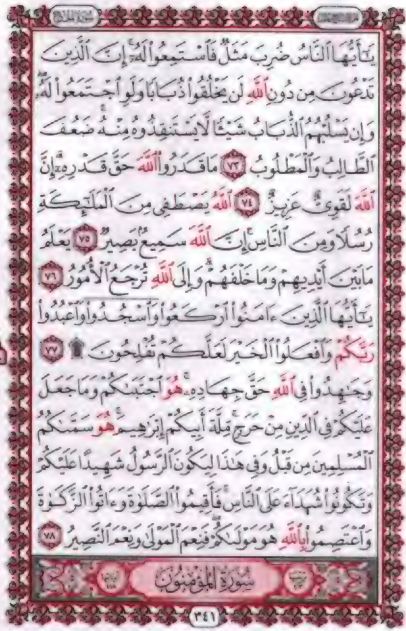 يَٰٓأَيُّهَا ٱلنَّاسُ ضُرِبَ مَثَلٌ فَٱسْتَمِعُوا۟ لَهُۥٓ إِنَّ ٱلَّذِينَ
تَدْعُونَ مِن دُونِ ٱللَّهِ لَن يَخْلُقُوا۟ ذُبَابًا وَلَوِ ٱجْتَمَعُوا۟ لَهُۥ
وَإِن يَسْلُبْهُمُ ٱلذُّبَابُ شَيْـًٔا لَّا يَسْتَنقِذُوهُ مِنْهُ ضَعُفَ
ٱلطَّالِبُ وَٱلْمَطْلُوبُ ٧٣ مَا قَدَرُوا۟ ٱللَّهَ حَقَّ قَدْرِهِۦٓ إِنَّ
ٱللَّهَ لَقَوِىٌّ عَزِيزٌ ٧٤ ٱللَّهُ يَصْطَفِى مِنَ ٱلْمَلَٰٓئِكَةِ
رُسُلًا وَمِنَ ٱلنَّاسِ إِنَّ ٱللَّهَ سَمِيعٌۢ بَصِيرٌ ٧٥ يَعْلَمُ
مَا بَيْنَ أَيْدِيهِمْ وَمَا خَلْفَهُمْ وَإِلَى ٱللَّهِ تُرْجَعُ ٱلْأُمُورُ ٧٦
يَٰٓأَيُّهَا ٱلَّذِينَ ءَامَنُوا۟ ٱرْكَعُوا۟ وَٱسْجُدُوا۟ وَٱعْبُدُوا۟
رَبَّكُمْ وَٱفْعَلُوا۟ ٱلْخَيْرَ لَعَلَّكُمْ تُفْلِحُونَ ۩ ٧٧
وَجَٰهِدُوا۟ فِى ٱللَّهِ حَقَّ جِهَادِهِۦ هُوَ ٱجْتَبَىٰكُمْ وَمَا جَعَلَ
عَلَيْكُمْ فِى ٱلدِّينِ مِنْ حَرَجٍ مِّلَّةَ أَبِيكُمْ إِبْرَٰهِيمَ هُوَ سَمَّىٰكُمُ
ٱلْمُسْلِمِينَ مِن قَبْلُ وَفِى هَٰذَا لِيَكُونَ ٱلرَّسُولُ شَهِيدًا عَلَيْكُمْ
وَتَكُونُوا۟ شُهَدَآءَ عَلَى ٱلنَّاسِ فَأَقِيمُوا۟ ٱلصَّلَوٰةَ وَءَاتُوا۟ ٱلزَّكَوٰةَ
وَٱعْتَصِمُوا۟ بِٱللَّهِ هُوَ مَوْلَىٰكُمْ فَنِعْمَ ٱلْمَوْلَىٰ وَنِعْمَ ٱلنَّصِيرُ ٧٨
سُورَةُ الْمُؤْمِنُونَ
٣٤١